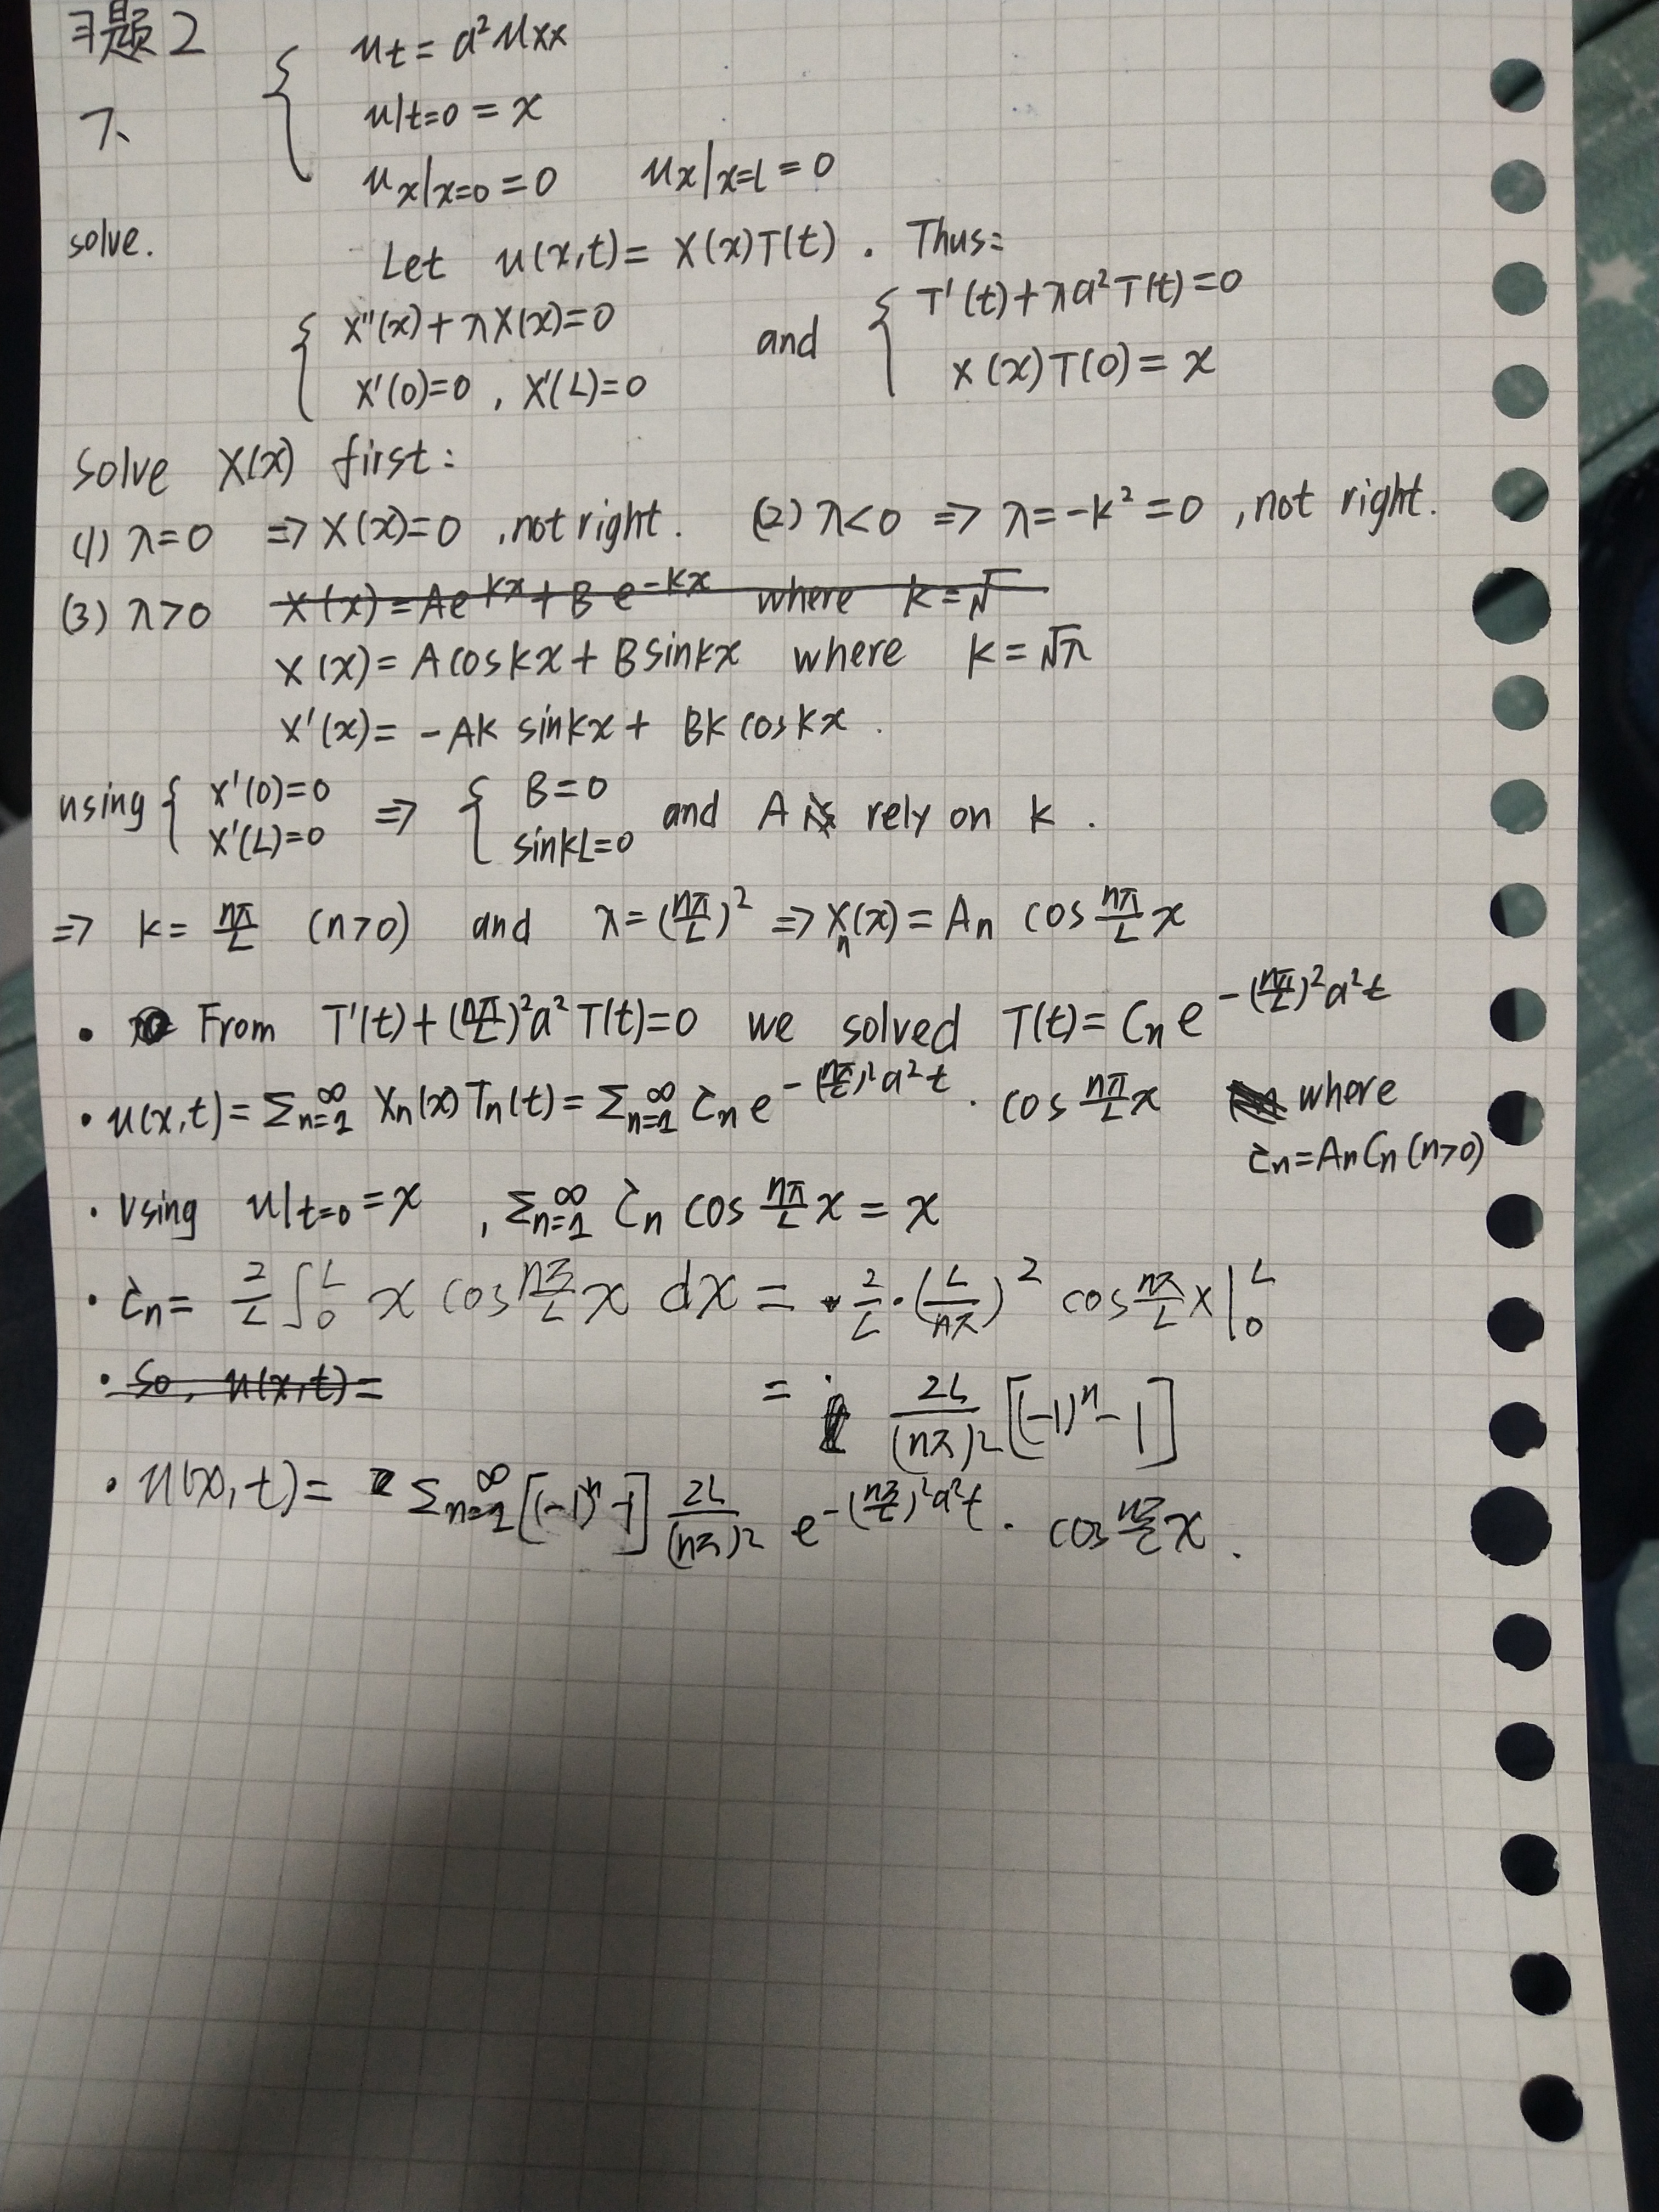 习题2
{ ut = a²uxx
7、 u|t=0 = x
ux|x=0 = 0 ux|x=L = 0
solve. Let u(x,t) = X(x)T(t). Thus:
{ X''(x)+λX(x)=0 and { T'(t)+λa²T(t)=0
X'(0)=0, X'(L)=0 X(x)T(0)=x
solve X(x) first:
(1) λ=0 ⇒ X(x)=0, not right. (2) λ<0 ⇒ λ=-k²=0, not right.
(3) λ>0 X(x)=Ae^kx+Be^-kx where k=√
X(x)=Acoskx+Bsinkx where k=√λ
X'(x)=-Ak sinkx+Bk coskx.
using { X'(0)=0 ⇒ { B=0 and A rely on k.
X'(L)=0 sinkL=0
⇒ k=nπ/L (n>0) and λ=(nπ/L)² ⇒ Xn(x)=An cos nπ/L x
• From T'(t)+(nπ/L)²a²T(t)=0 we solved T(t)=Cn e^-(nπ/L)²a²t
• u(x,t)=Σn=1^∞ Xn(x)Tn(t)=Σn=1^∞ C̃n e^-(nπ/L)²a²t · cos nπ/L x where
C̃n=AnCn (n>0)
• Using u|t=0=x, Σn=1^∞ C̃n cos nπ/L x = x
• C̃n = 2/L ∫0^L x cos nπ/L x dx = 2/L·(L/nπ)² cos nπ/L x|0^L
• So, u(x,t)= = 2L/(nπ)² [(-1)^n-1]
• u(x,t)= Σn=1^∞ [(-1)^n-1] 2L/(nπ)² e^-(nπ/L)²a²t · cos nπ/L x.